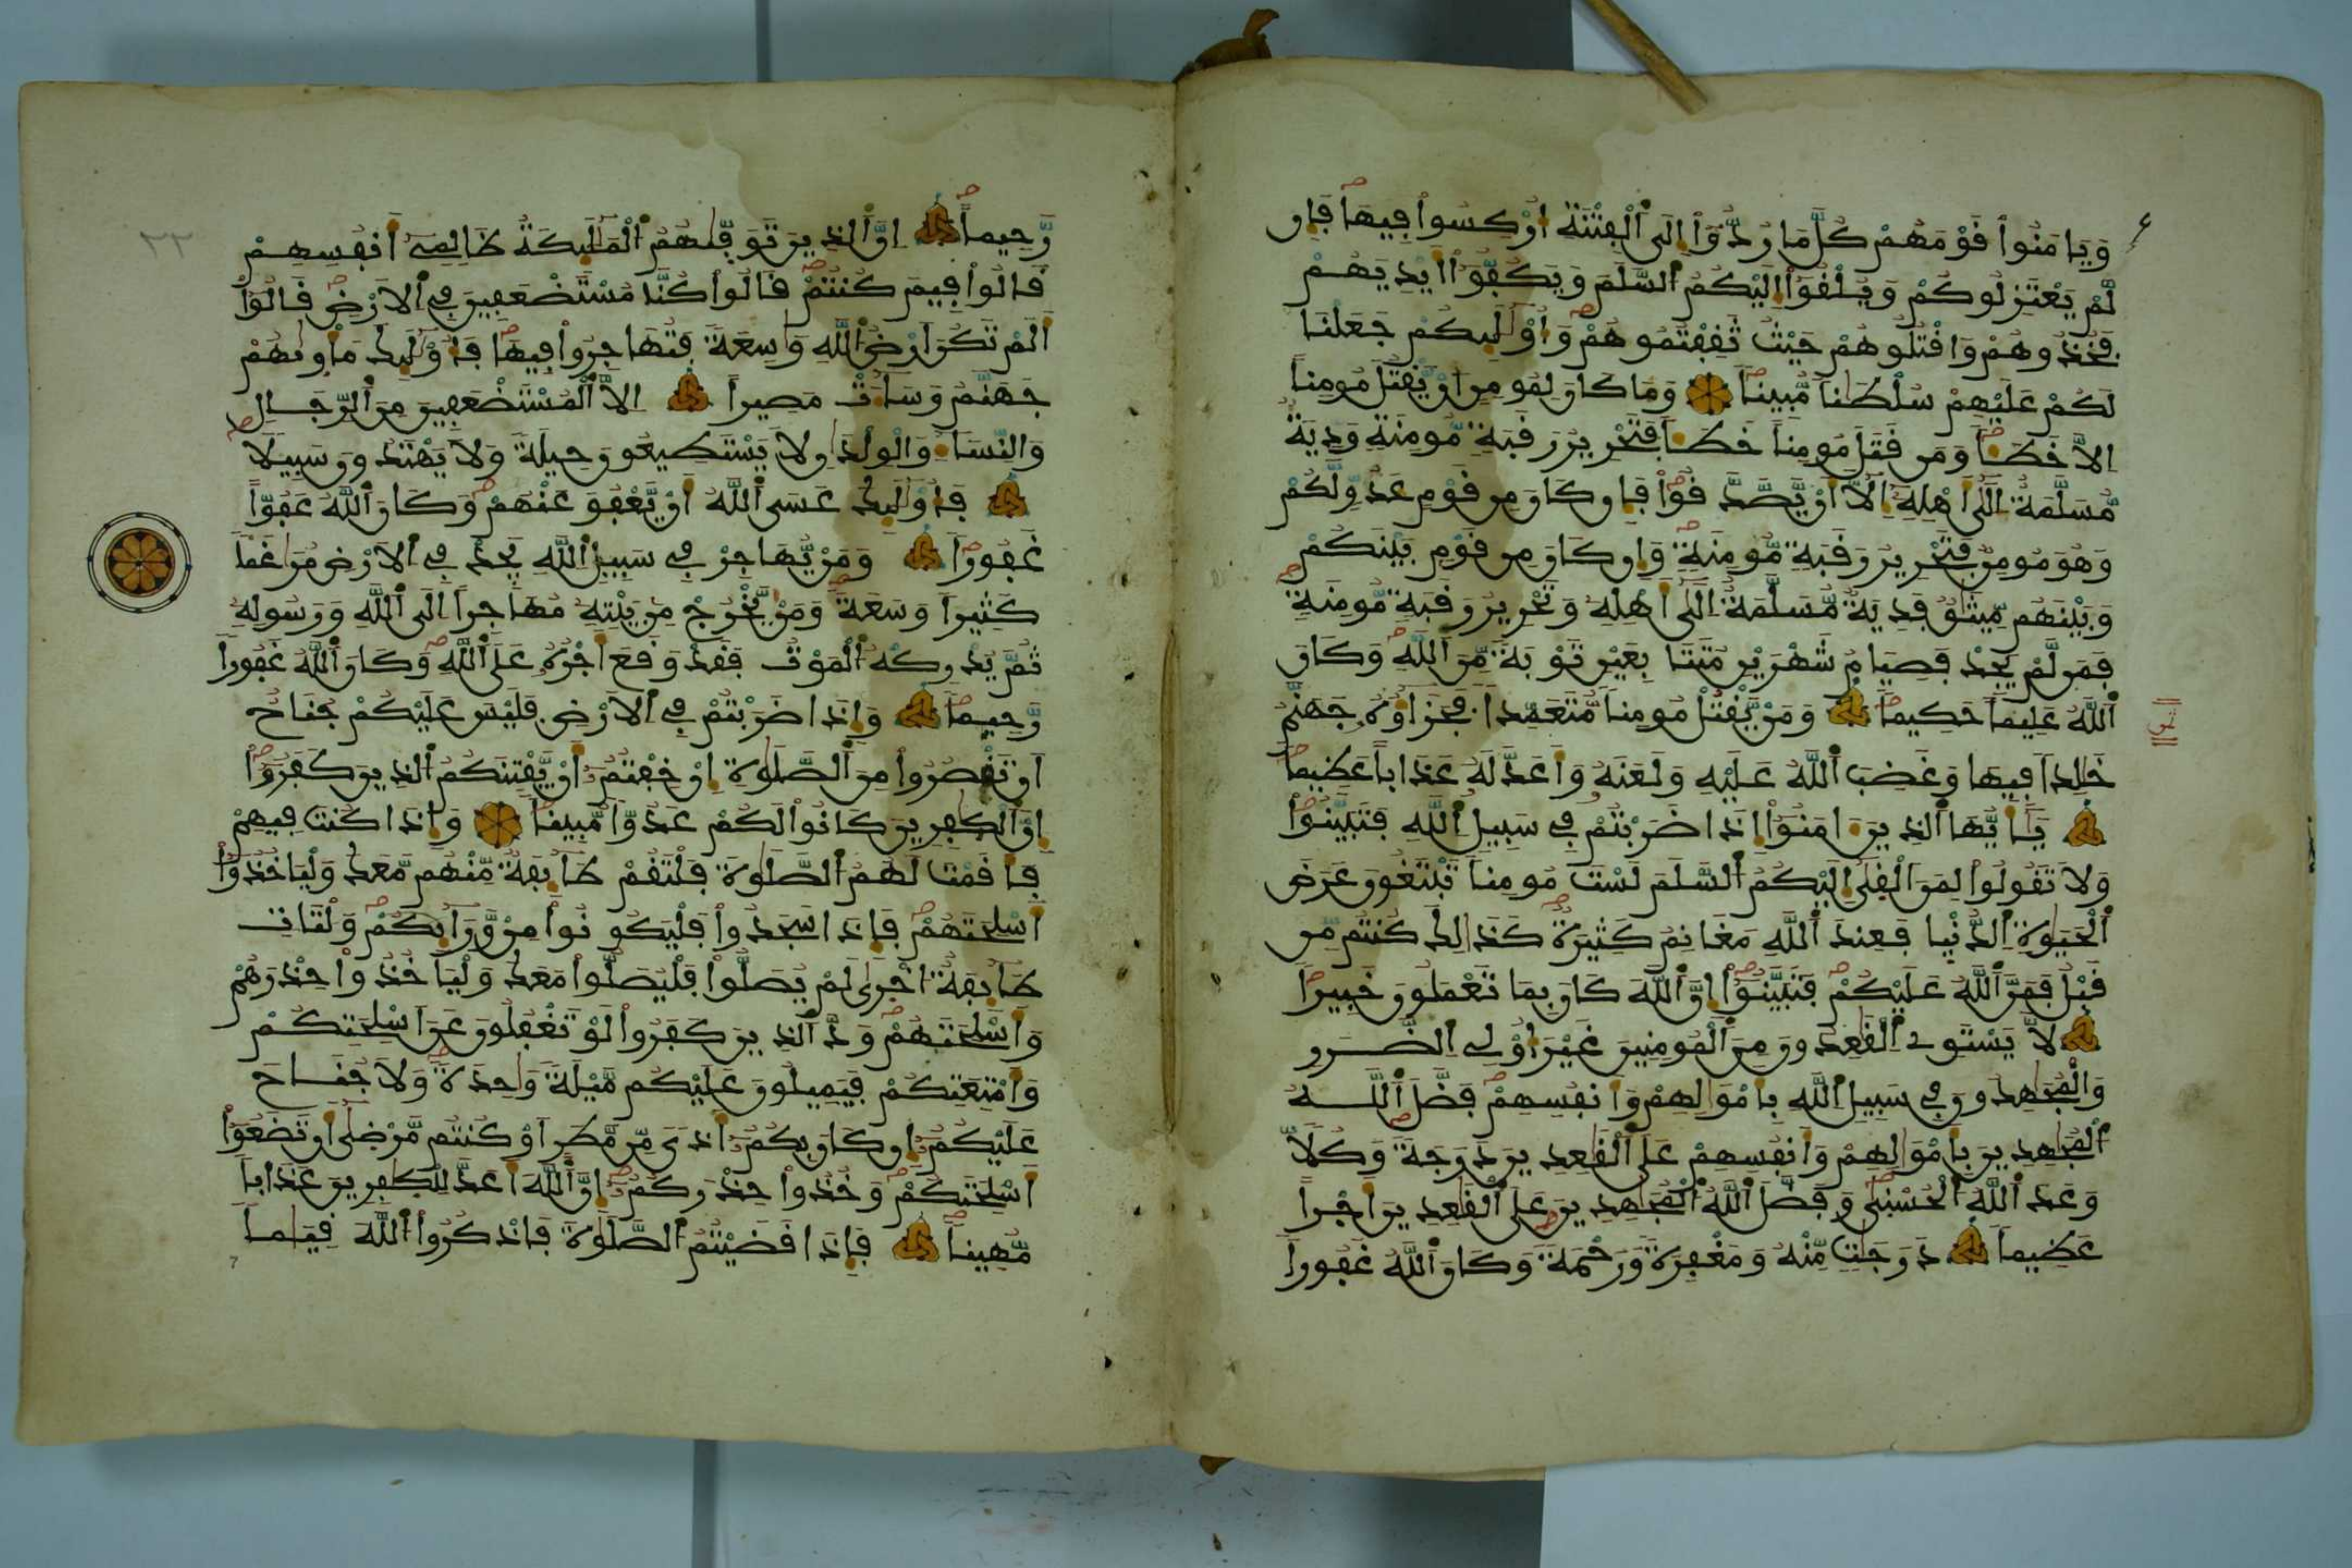 وَيَامَنُوا۟ قَوْمَهُمْ كُلَّ مَا رُدُّوٓا۟ إِلَى ٱلْفِتْنَةِ أُرْكِسُوا۟ فِيهَا فَإِن
لَّمْ يَعْتَزِلُوكُمْ وَيُلْقُوٓا۟ إِلَيْكُمُ ٱلسَّلَمَ وَيَكُفُّوٓا۟ أَيْدِيَهُمْ
فَخُذُوهُمْ وَاقْتُلُوهُمْ حَيْثُ ثَقِفْتُمُوهُمْ وَأُوْلَٰٓئِكُمْ جَعَلْنَا
لَكُمْ عَلَيْهِمْ سُلْطَٰناً مُّبِيناً وَمَا كَانَ لِمُومِنٍ أَنْ يَّقْتُلَ مُومِناً
إِلَّا خَطَـٔاً وَمَن قَتَلَ مُومِناً خَطَـٔاً فَتَحْرِيرُ رَقَبَةٍ مُّومِنَةٍ وَدِيَةٌ
مُّسَلَّمَةٌ إِلَىٰٓ أَهْلِهِۦٓ إِلَّآ أَنْ يَّصَّدَّقُوا۟ فَإِن كَانَ مِن قَوْمٍ عَدُوٍّ لَّكُمْ
وَهُوَ مُومِنٌ فَتَحْرِيرُ رَقَبَةٍ مُّومِنَةٍ وَإِن كَانَ مِن قَوْمٍ بَيْنَكُمْ
وَبَيْنَهُم مِّيثَٰقٌ فَدِيَةٌ مُّسَلَّمَةٌ إِلَىٰٓ أَهْلِهِۦ وَتَحْرِيرُ رَقَبَةٍ مُّومِنَةٍ
فَمَن لَّمْ يَجِدْ فَصِيَامُ شَهْرَيْنِ مُتَتَابِعَيْنِ تَوْبَةً مِّنَ ٱللَّهِ وَكَانَ
ٱللَّهُ عَلِيماً حَكِيماً وَمَنْ يَّقْتُلْ مُومِناً مُّتَعَمِّداً فَجَزَآؤُهُۥ جَهَنَّمُ
خَٰلِداً فِيهَا وَغَضِبَ ٱللَّهُ عَلَيْهِ وَلَعَنَهُۥ وَأَعَدَّ لَهُۥ عَذَاباً عَظِيماً
يَٰٓأَيُّهَا ٱلذِينَ ءَامَنُوٓا۟ إِذَا ضَرَبْتُمْ فِى سَبِيلِ ٱللَّهِ فَتَبَيَّنُوا۟
وَلَا تَقُولُوا۟ لِمَنَ ٱلْقَىٰٓ إِلَيْكُمُ ٱلسَّلَمَ لَسْتَ مُومِناً تَبْتَغُونَ عَرَضَ
ٱلْحَيَوٰةِ ٱلدُّنْيا فَعِندَ ٱللَّهِ مَغَانِمُ كَثِيرَةٌ كَذَٰلِكَ كُنتُم مِّن
قَبْلُ فَمَنَّ ٱللَّهُ عَلَيْكُمْ فَتَبَيَّنُوٓا۟ إِنَّ ٱللَّهَ كَانَ بِمَا تَعْمَلُونَ خَبِيراً
لَّا يَسْتَوِى ٱلْقَٰعِدُونَ مِنَ ٱلْمُومِنِينَ غَيْرَ أُوْلِى ٱلضَّرَرِ
وَالْمُجَٰهِدُونَ فِى سَبِيلِ ٱللَّهِ بِأَمْوَٰلِهِمْ وَأَنفُسِهِمْ فَضَّلَ ٱللَّهُ
ٱلْمُجَٰهِدِينَ بِأَمْوَٰلِهِمْ وَأَنفُسِهِمْ عَلَى ٱلْقَٰعِدِينَ دَرَجَةً وَكُلّاً
وَعَدَ ٱللَّهُ ٱلْحُسْنَىٰ وَفَضَّلَ ٱللَّهُ ٱلْمُجَٰهِدِينَ عَلَى ٱلْقَٰعِدِينَ أَجْراً
عَظِيماً دَرَجَٰتٍ مِّنْهُ وَمَغْفِرَةً وَرَحْمَةً وَكَانَ ٱللَّهُ غَفُوراً
ثمن
رَّحِيماً إِنَّ ٱلذِينَ تَوَفَّىٰهُمُ ٱلْمَلَٰٓئِكَةُ ظَالِمِىٓ أَنفُسِهِمْ
قَالُوا۟ فِيمَ كُنتُمْ قَالُوا۟ كُنَّا مُسْتَضْعَفِينَ فِى ٱلَارْضِ قَالُوٓا۟
أَلَمْ تَكُنَ ارْضُ ٱللَّهِ وَٰسِعَةً فَتُهَاجِرُوا۟ فِيهَا فَأُوْلَٰٓئِكَ مَأْوَىٰهُمْ
جَهَنَّمُ وَسَآءَتْ مَصِيراً إِلَّا ٱلْمُسْتَضْعَفِينَ مِنَ ٱلرِّجَالِ
وَالنِّسَآءِ وَالْوِلْدَٰنِ لَا يَسْتَطِيعُونَ حِيلَةً وَلَا يَهْتَدُونَ سَبِيلاً
فَأُوْلَٰٓئِكَ عَسَى ٱللَّهُ أَنْ يَّعْفُوَ عَنْهُمْ وَكَانَ ٱللَّهُ عَفُوّاً
غَفُوراً وَمَنْ يُّهَاجِرْ فِى سَبِيلِ ٱللَّهِ يَجِدْ فِى ٱلَارْضِ مُرَٰغَماً
كَثِيراً وَسَعَةً وَمَنْ يَّخْرُجْ مِنۢ بَيْتِهِۦ مُهَاجِراً إِلَى ٱللَّهِ وَرَسُولِهِۦ
ثُمَّ يُدْرِكْهُ ٱلْمَوْتُ فَقَدْ وَقَعَ أَجْرُهُۥ عَلَى ٱللَّهِ وَكَانَ ٱللَّهُ غَفُوراً
رَّحِيماً وَإِذَا ضَرَبْتُمْ فِى ٱلَارْضِ فَلَيْسَ عَلَيْكُمْ جُنَاحٌ
اَن تَقْصُرُوا۟ مِنَ ٱلصَّلَوٰةِ إِنْ خِفْتُمُۥٓ أَنْ يَّفْتِنَكُمُ ٱلذِينَ كَفَرُوٓا۟
إِنَّ ٱلْكَٰفِرِينَ كَانُوا۟ لَكُمْ عَدُوّاً مُّبِيناً وَإِذَا كُنتَ فِيهِمْ
فَأَقَمْتَ لَهُمُ ٱلصَّلَوٰةَ فَلْتَقُمْ طَآئِفَةٌ مِّنْهُم مَّعَكَ وَلْيَاخُذُوٓا۟
أَسْلِحَتَهُمْ فَإِذَا سَجَدُوا۟ فَلْيَكُونُوا۟ مِنْ وَّرَآئِكُمْ وَلْتَاتِ
طَآئِفَةٌ أُخْرَىٰ لَمْ يُصَلُّوا۟ فَلْيُصَلُّوا۟ مَعَكَ وَلْيَاخُذُوا۟ حِذْرَهُمْ
وَأَسْلِحَتَهُمْ وَدَّ ٱلذِينَ كَفَرُوا۟ لَوْ تَغْفُلُونَ عَنَ اسْلِحَتِكُمْ
وَأَمْتِعَتِكُمْ فَيَمِيلُونَ عَلَيْكُم مَّيْلَةً وَٰحِدَةً وَلَا جُنَاحَ
عَلَيْكُمُۥٓ إِن كَانَ بِكُمُۥٓ أَذىً مِّن مَّطَرٍ اَوْ كُنتُم مَّرْضَىٰٓ أَن تَضَعُوٓا۟
أَسْلِحَتَكُمْ وَخُذُوا۟ حِذْرَكُمُۥٓ إِنَّ ٱللَّهَ أَعَدَّ لِلْكَٰفِرِينَ عَذَاباً
مُّهِيناً فَإِذَا قَضَيْتُمُ ٱلصَّلَوٰةَ فَاذْكُرُوا۟ ٱللَّهَ قِيَٰماً
٢٣